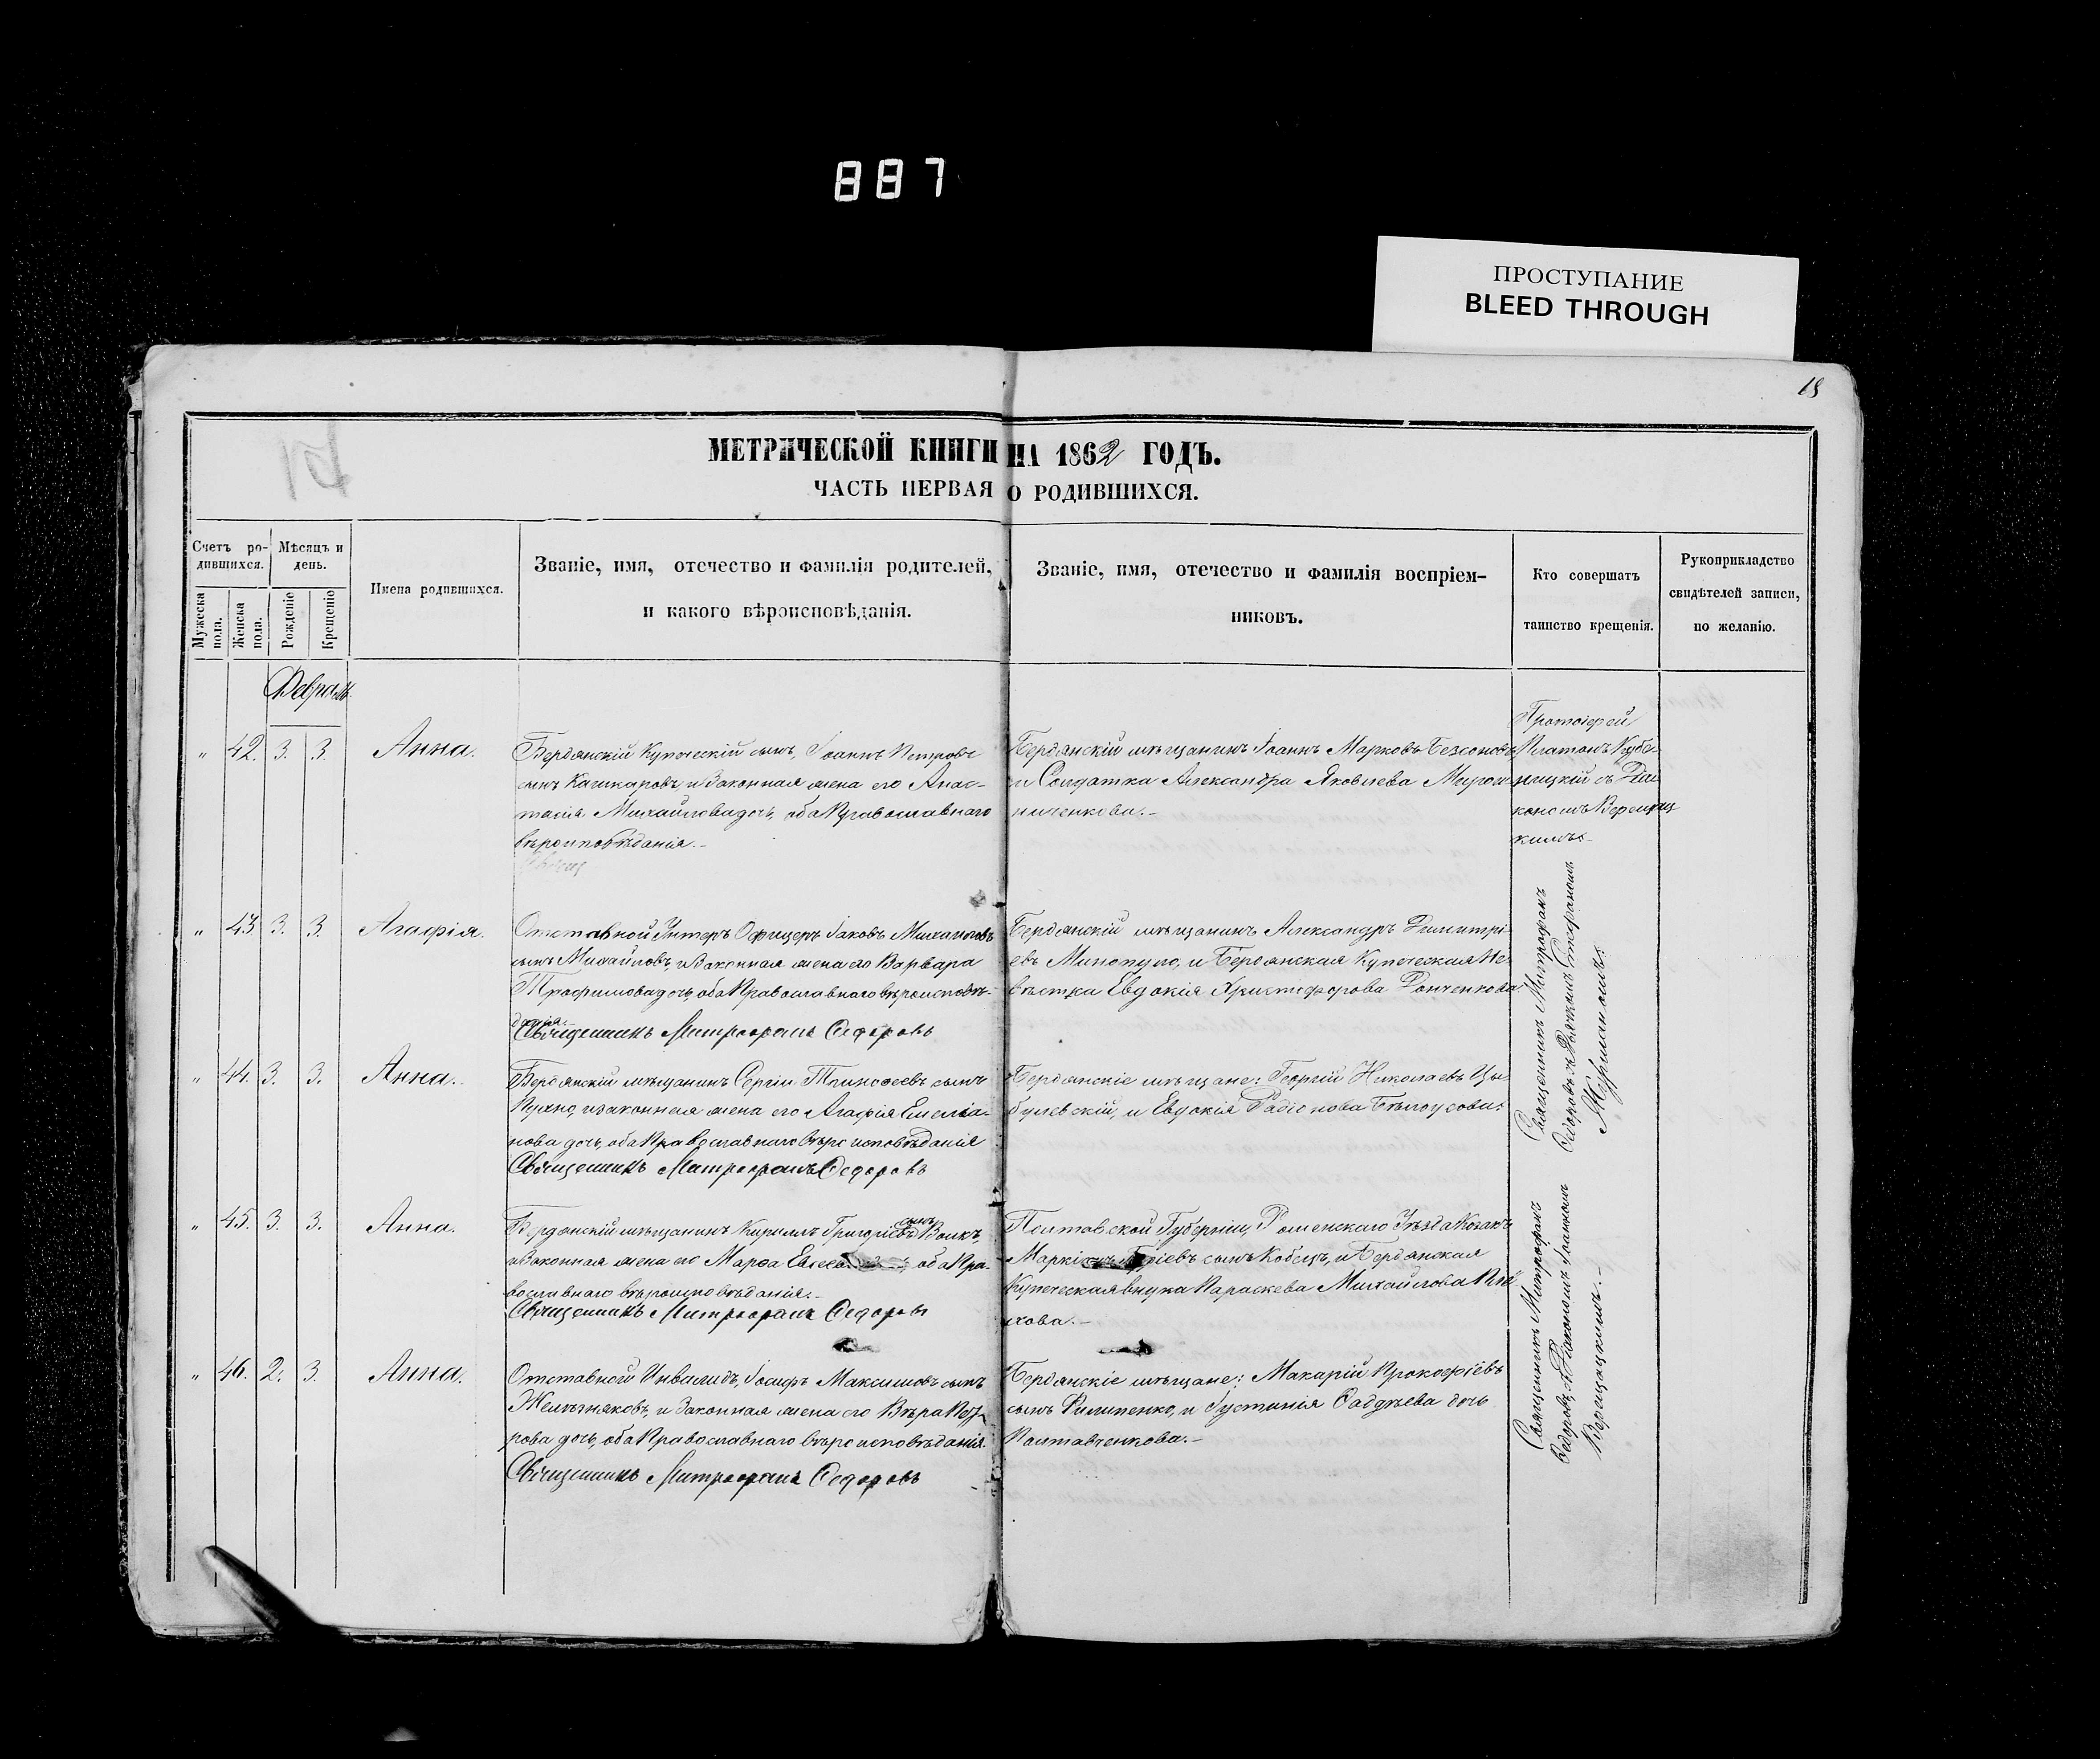 887
ПРОСТУПАНИЕ
BLEED THROUGH
18
МЕТРИЧЕСКОЙ КНИГИ НА 1862 ГОДЪ.
ЧАСТЬ ПЕРВАЯ О РОДИВШИХСЯ.
Счетъ ро-
дившихся.
Мужеска
пола.
Женска
пола.
Мѣсяцъ и
день.
Рожденіе
Крещеніе
Имена родившихся.
Званіе, имя, отечество и фамилія родителей,
и какого вѣроисповѣданія.
Званіе, имя, отечество и фамилія воспріем-
никовъ.
Кто совершатъ
таинство крещенія.
Рукоприкладство
свидѣтелей записи,
по желанію.
Февраль.
" 42. 3. 3. Анна.
Бердянскій Купеческій сынъ, Іоаннъ Петровъ
сынъ Кашкаровъ и Законная жена его Анас-
тасія Михайлова дочь, оба Православнаго
вѣроисповѣданія.-
Бердянскій мѣщанинъ Іоаннъ Марковъ Безсоновъ
и Солдатка Александра Яковлева Мирош-
ниченкова.-
Протоіерей
Платонъ
съ Діа-
кономъ Верещац
кимъ-
" 43 3. 3. Агафія.
Отставной Унтеръ Офицеръ Іаковъ Михайловъ
сынъ Михайловъ, и Законная жена его Варвара
Трофимова дочь, оба Православнаго вѣроисповѣ-
данія.-
Священникъ Митрофанъ Федоровъ
Бердянскій мѣщанинъ Александръ Димитрі-
евъ Минопуло, и Бердянская Купеческая Не-
вѣстка Евдокія Христофорова Донченкова.
Священникъ Митрофанъ
Федоровъ съ Дьякомъ Стефаномъ
" 44. 3. 3. Анна.
Бердянскій мѣщанинъ Сергій Тимофеевъ сынъ
Пухно, и законная жена его Агафія Емеліа-
нова дочь, оба Православнаго вѣроисповѣданія
Священникъ Митрофанъ Федоровъ
Бердянскіе мѣщане: Георгій Николаевъ Цы-
булевскій, и Евдокія Радіонова Бѣлоусова.
" 45. 3. 3. Анна.
Бердянскій мѣщанинъ Кириллъ Григоріевъ сынъ Волкъ,
и Законная жена его Марфа оба Пра-
вославнаго вѣроисповѣданія.-
Священникъ Митрофанъ Федоровъ
Полтавской Губерніи, Роменскаго Уѣзда Козакъ
сынъ Кобецъ, и Бердянская
Купеческая внука Параскева Михайлова
хова.-
Священникъ Митрофанъ
Федоровъ, съ Діакономъ Іоанномъ
Верещацкимъ.-
" 46. 2. 3. Анна.
Отставной Инвалидъ, Іосифъ Максимовъ сынъ
Желѣзняковъ, и Законная жена его Вѣра Пет-
рова дочь, оба Православнаго вѣроисповѣданія.
Священникъ Митрофанъ Федоровъ
Бердянскіе мѣщане: Макарій Прокофіевъ
сынъ Филипенко, и Іустинія Фаддѣева дочь
Полтавченкова.-